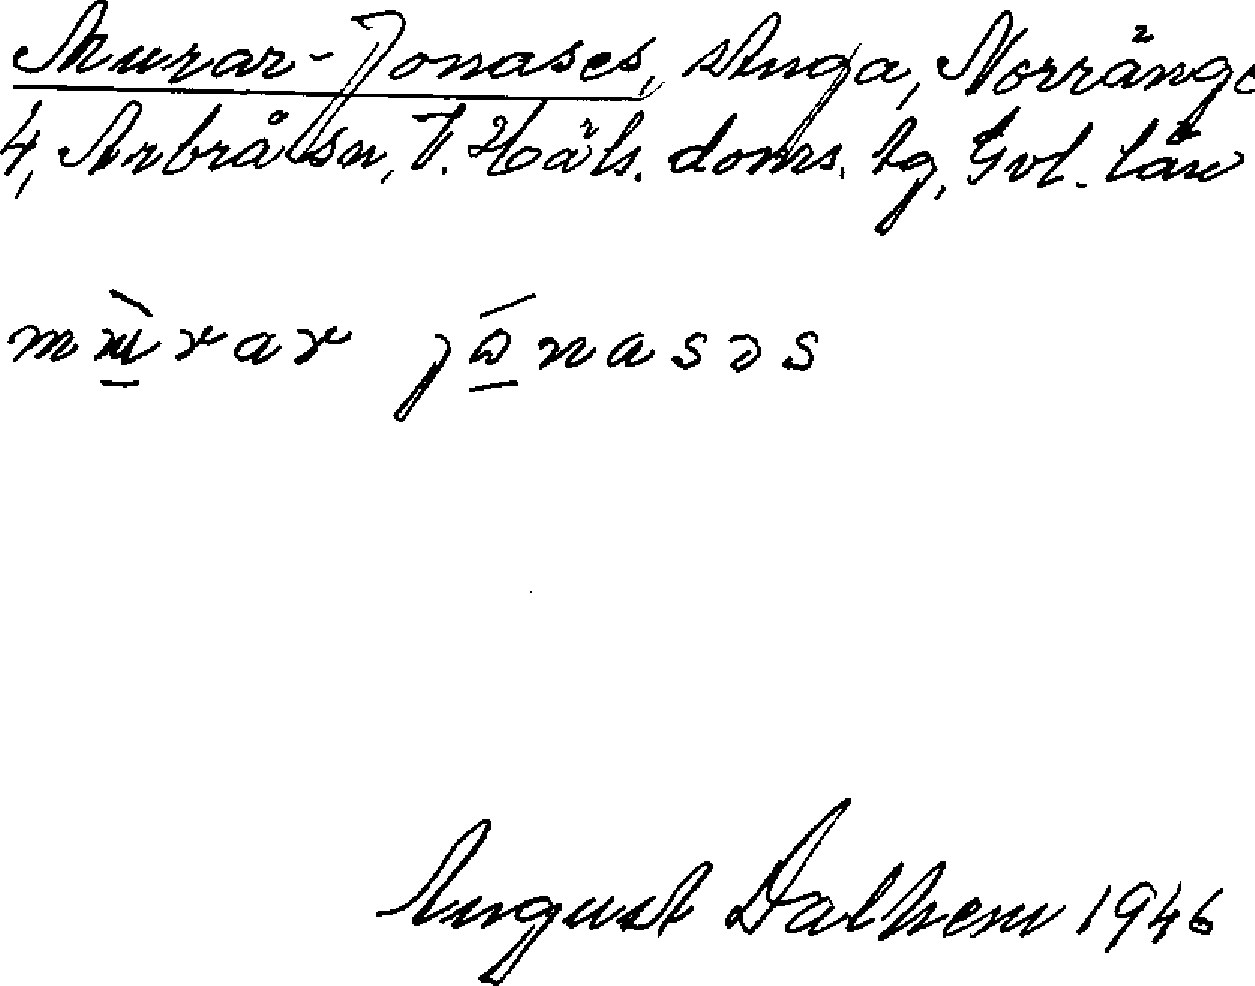 Murar-Jonases, stuga, Norränge
4, Arbrå sn, V. Häls. doms. tg, Gvl. län
mùrar jónasəs
August Dalhem 1946